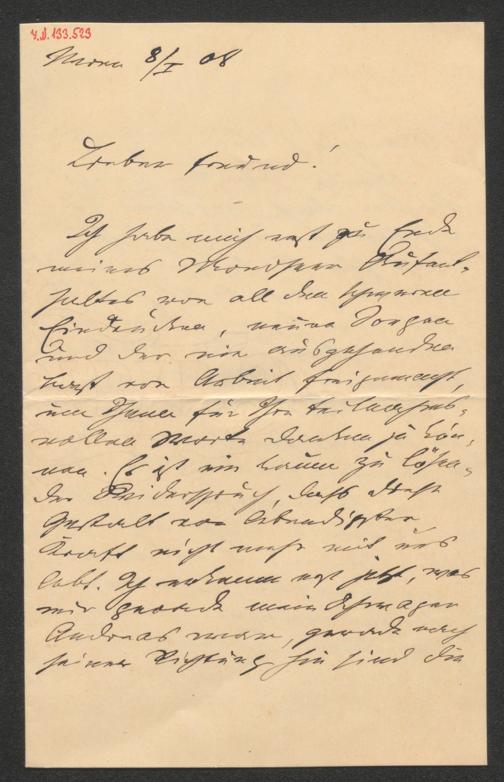 H.I.N. 133.523
Wien 8/I 08
Lieber Freund!
Ich habe mich erst zu Ende
meines Aufent-
haltes von all den schweren
Eindrücken, neuen Sorgen
und der mir
Last von Arbeit freigemacht,
um Ihnen für Ihre teilnahms-
vollen Worte danken zu kön-
nen. Es ist ein kaum zu lösen-
der Widerspruch, dass diese
Gestalt von lebendigster
Kraft nicht mehr mit uns
lebt. Ich erkenne erst jetzt, was
mir gerade mein Schwager
Andreas war, gerade nach
seiner Richtung hin sind die